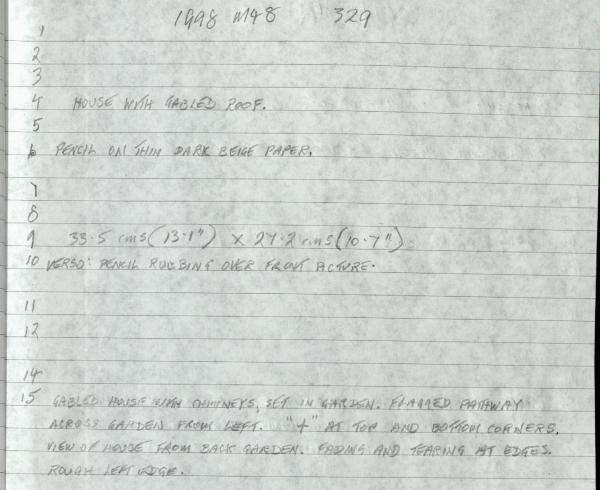 1998 M48 329
1
2
3
4 HOUSE WITH GABLED ROOF.
5
6 PENCIL ON THIN DARK BEIGE PAPER.
7
8
9 33.5 cms (13.1") X 27.2 cms (10.7")
10 VERSO: PENCIL RUBBING OVER FRONT PICTURE.
11
12
14
15 GABLED HOUSE WITH CHIMNEYS, SET IN GARDEN. FLAGGED PATHWAY
ACROSS GARDEN FROM LEFT. "+" AT TOP AND BOTTOM CORNERS.
VIEW OF HOUSE FROM BACK GARDEN. FADING AND TEARING AT EDGES.
ROUGH LEFT EDGE.